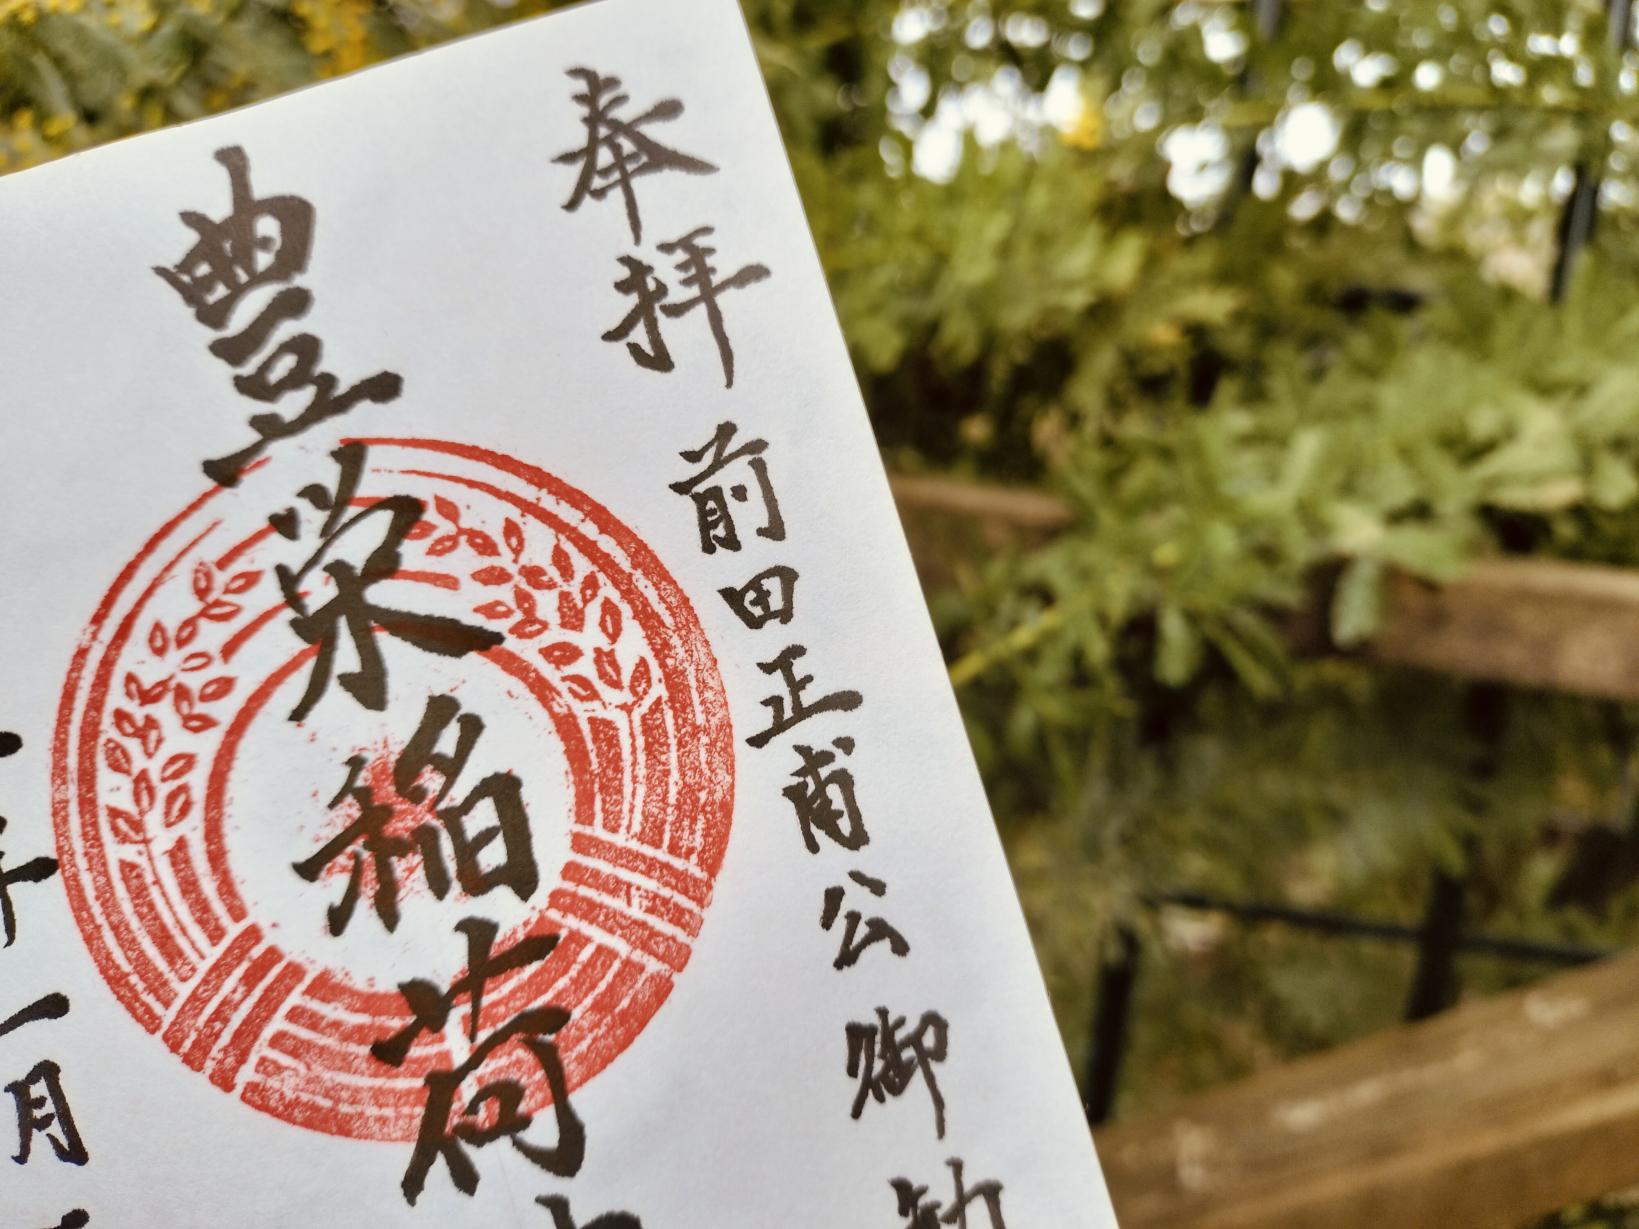 奉拝 前田正甫公 御
豊栄稲荷
年一月